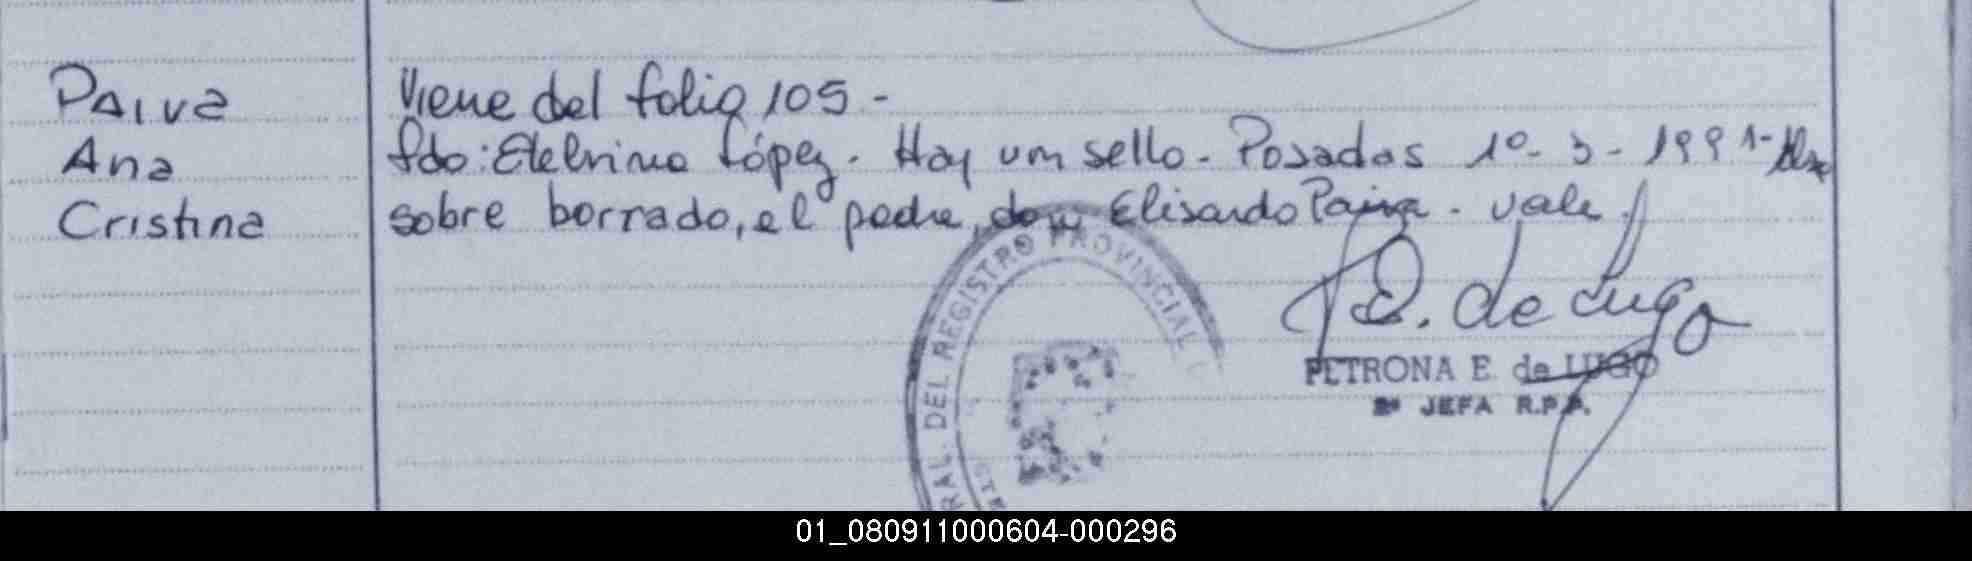 Paiva
Ana
Cristina
Viene del folio 105-
fdo: Etelvina López. Hay um sello. Posadas 1º-3-1991-
sobre borrado, el padre, don Elisardo Paiva. vale.
RAL DEL REGISTRO PROVINCIAL
P.E. de Lugo
PETRONA E. de LUGO
2ª JEFA R.P.P.
01_080911000604-000296